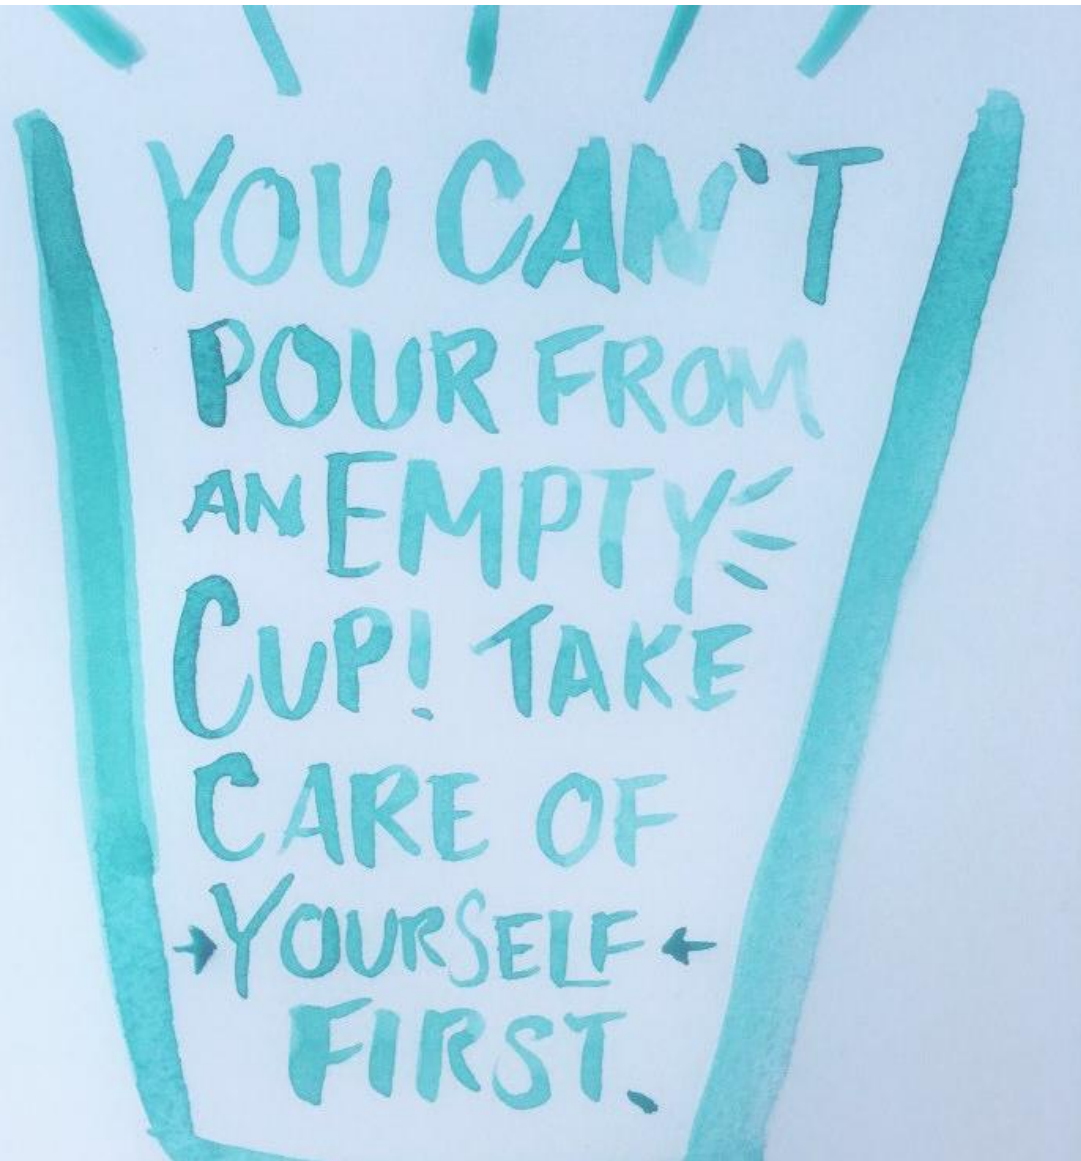 YOU CAN'T
POUR FROM
AN EMPTY
CUP! TAKE
CARE OF
YOURSELF
FIRST.